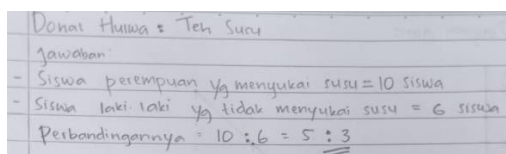 Donat Huiwa : Teh Susu
Jawaban:
- Siswa perempuan yg menyukai susu = 10 siswa
- Siswa laki-laki yg tidak menyukai susu = 6 siswa
Perbandingannya = 10 : 6 = 5 : 3